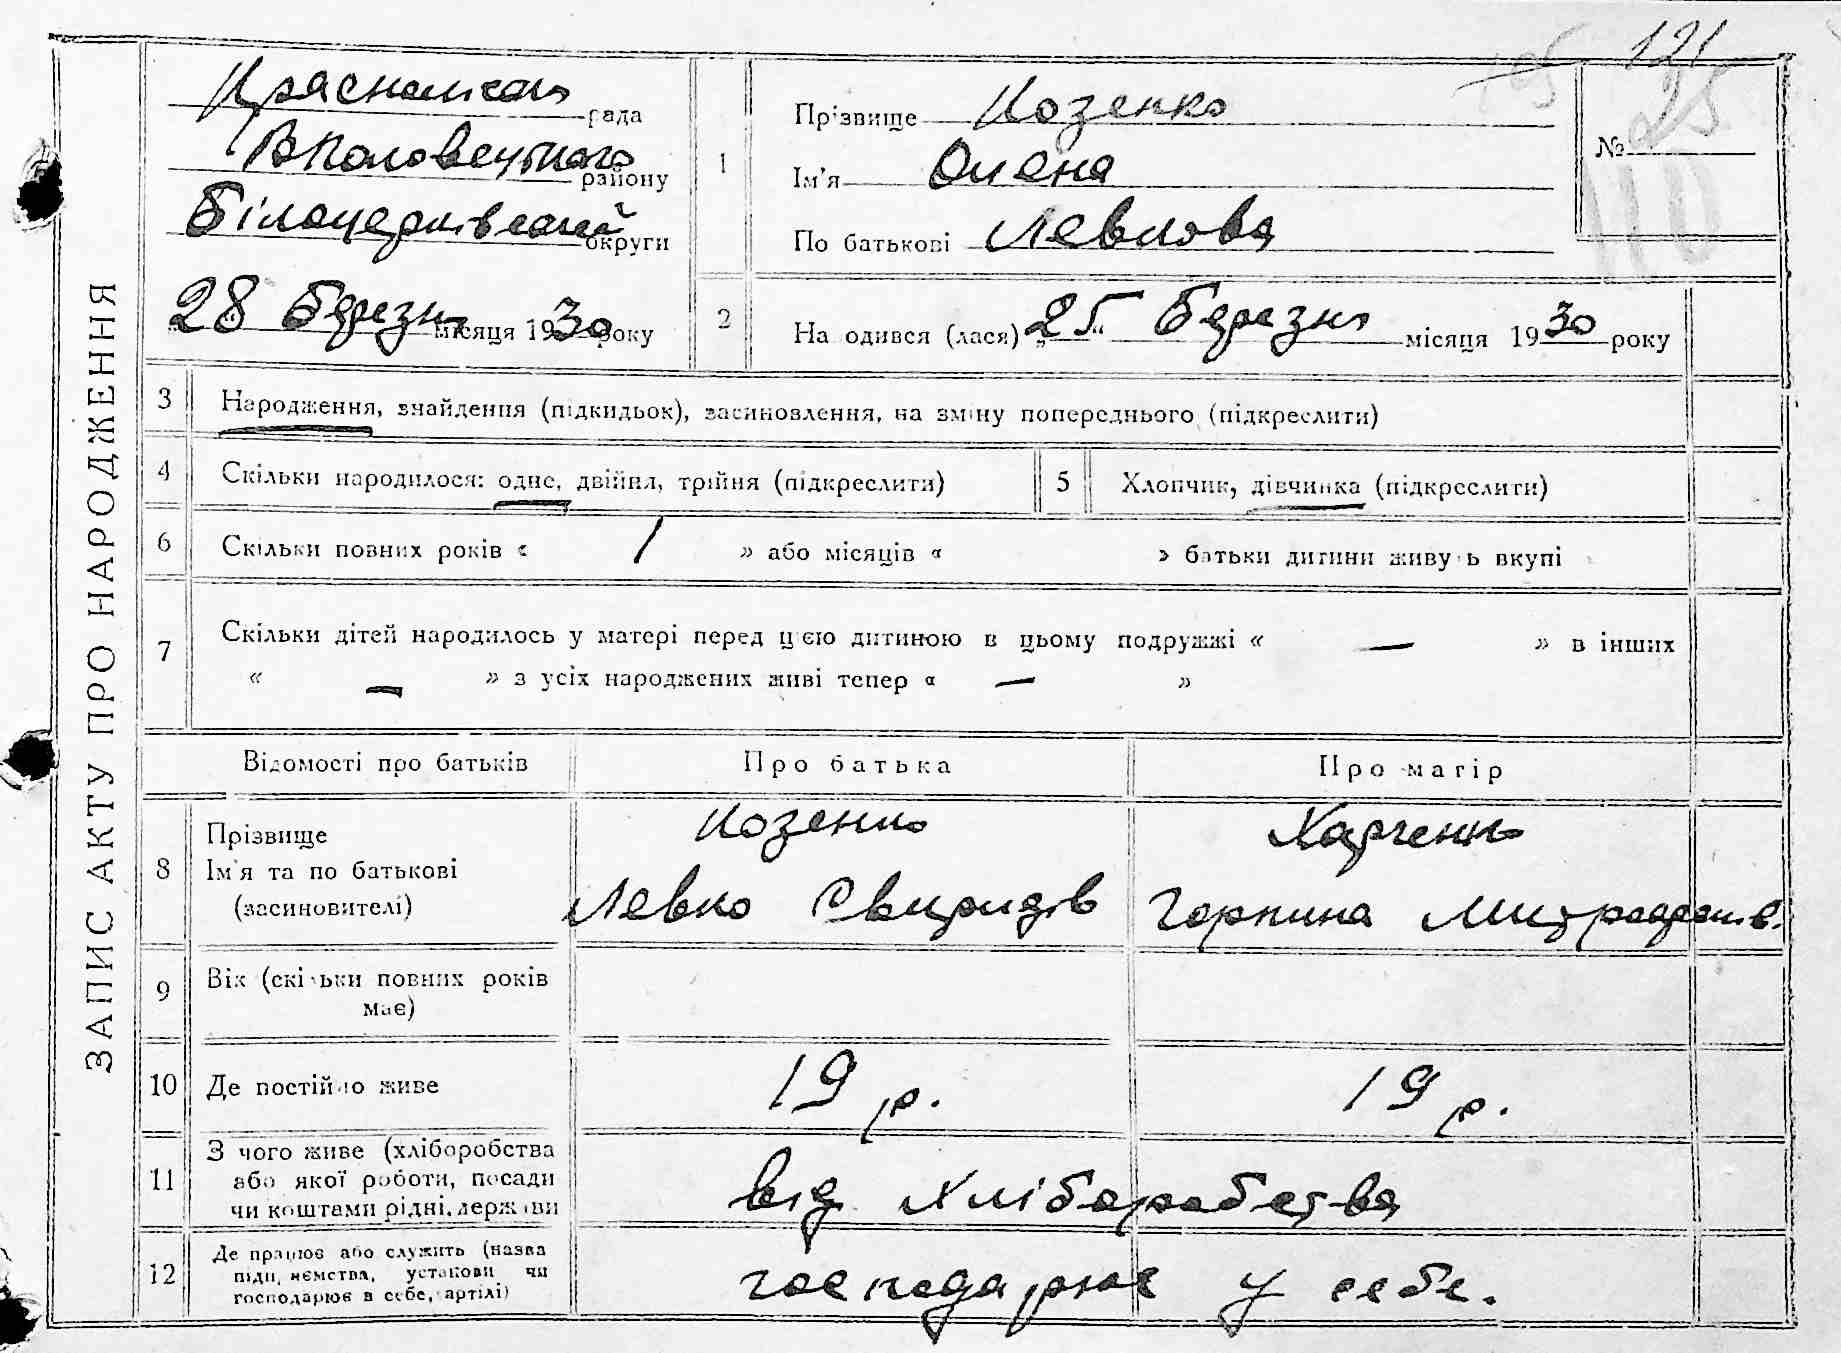 ЗАПИС АКТУ ПРО НАРОДЖЕННЯ
121
Краснолісов рада
В Половецького району
Білоцерківської округи
28 Березня місяця 1930 року
1
Прізвище Козенко
Ім'я Олена
По батькові Левкова
№ 25
110
2
На одився (лася) „25" Березня місяця 1930 року
3 Народження, знайдення (підкидьок), засиновлення, на зміну попереднього (підкреслити)
4 Скільки народилося: одне, двійня, трійня (підкреслити)
5 Хлопчик, дівчинка (підкреслити)
6 Скільки повних років « 1 » або місяців « » батьки дитини живуть вкупі
7 Скільки дітей народилось у матері перед цією дитиною в цьому подружжі « — » в інших
« — » з усіх народжених живі тепер « — »
Відомості про батьків
Про батька
Про матір
8 Прізвище
Ім'я та по батькові
(засиновителі)
Козенко
Левко Свиридів
Харченко
Горпина Митрофанів.
9 Вік (скільки повних років
має)
10 Де постійно живе
19 р.
19 р.
11 З чого живе (хліборобства
або якої роботи, посади
чи коштами рідні, держави
від Хліборобства
12 Де працює або служить (назва
підприємства, установи чи
господарює в себе, артілі)
господарює у себе.